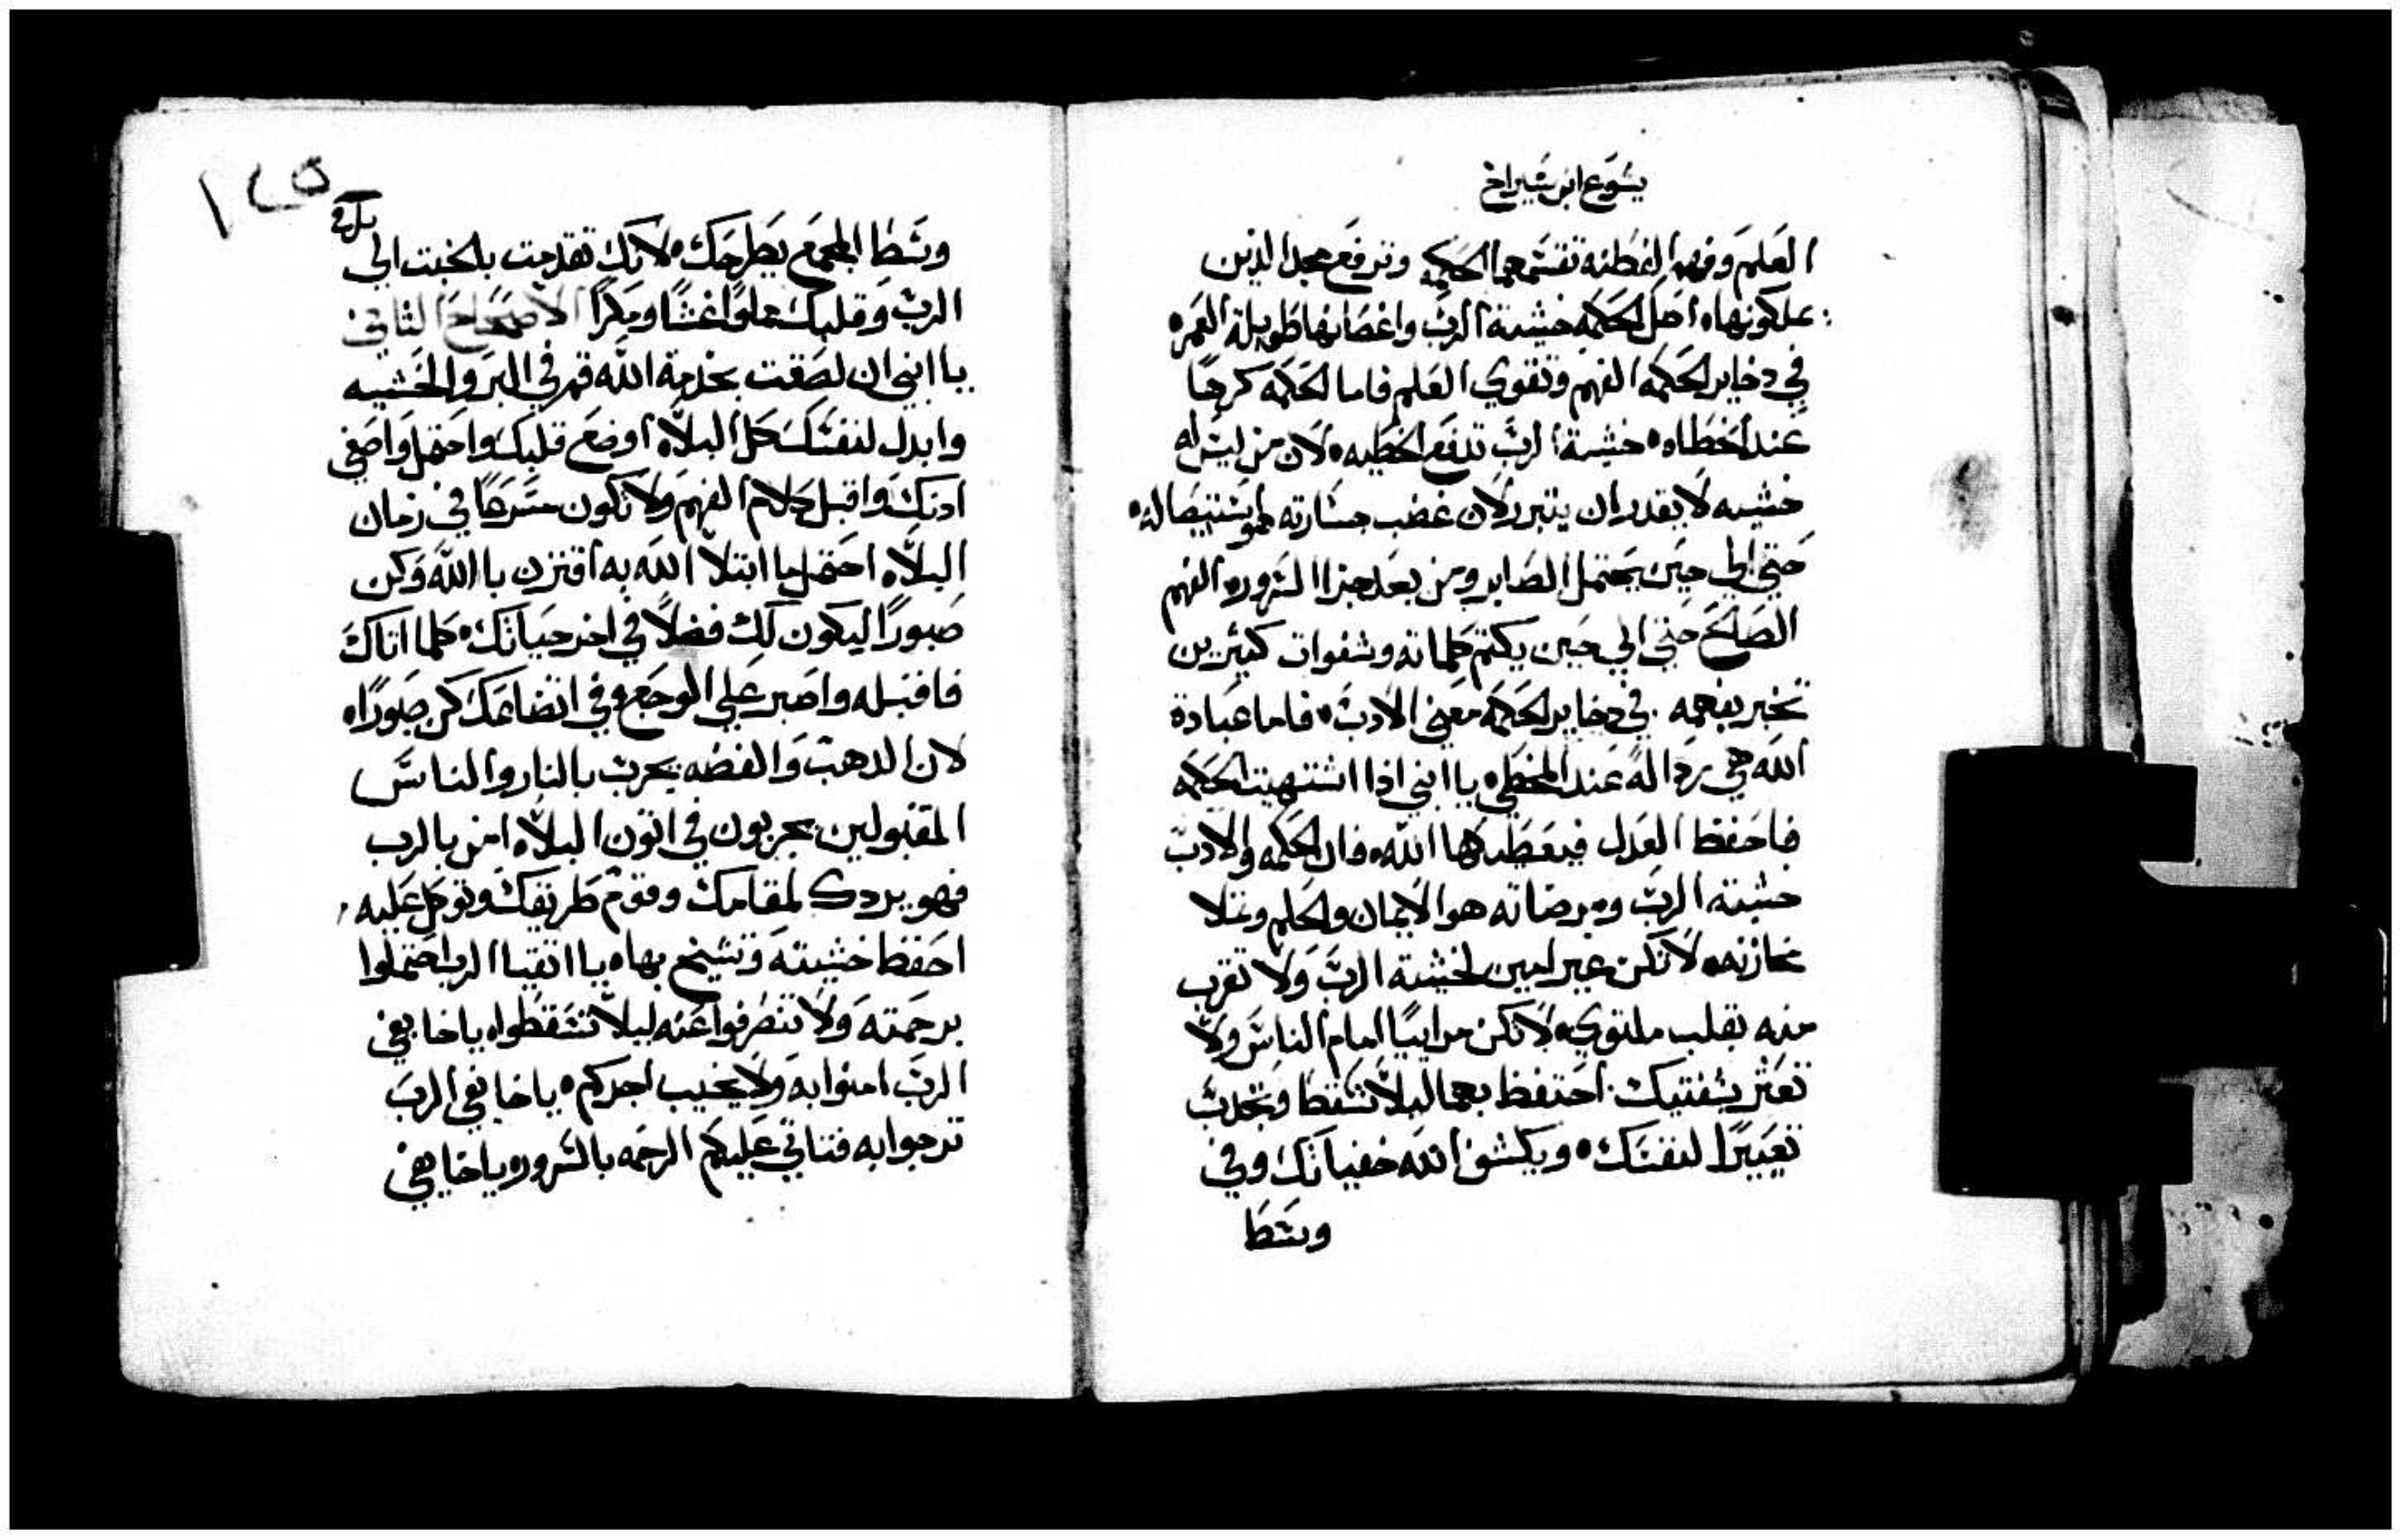 يسوع ابن شيراخ
العلم وفهم الفطنه تقسمهما الحكمه وترفع مجد الذين
يملكونها ه اصل الحكمه خشية الرب واغصانها طويلة العمر ه
في دخاير الحكمه الفهم وتقوي العلم فاما الحكمه كرها
عند الخطاه ه خشية الرب تدفع الخطيه ه لان من ليس له
خشيه لا يقدر ان يتبرر لان غضب جسارته هو
حتي الي حين يحتمل الصابر ومن بعد هذا السرور ه الفهم
الصالح حتي الي حين يكتم كلماته وشفوات كثيرين
تخبر بفهمه في دخاير الحكمه معني الادب ه فاما عبادة
الله هي رداله عند المخطي ه يا ابني اذا اشتهيت الحكمه
فاحفظ العدل فيعطيكها الله ه فان الحكمه والادب
خشية الرب ومرضاته هو الايمان والحلم وتملا
خازنه ه لا تكن غير امين لخشية الرب ولا تقرب
منه بقلب ملتوي ه لا تكن مراييًا امام الناس ولا
تعثر بشفتيك احتفظ بهما ليلا تسقط وتجلب
تعييرًا لنفسك ه ويكشف الله خفياتك وفي
وسط
١٢٥
وسط المجمع يطرحك ه لانك تقدمت بالخبت الي
الرب وقلبك مملوا غشًا ومكرًا الاصحاح الثاني
يا ابني ان لصقت بخدمة الله قم في البر والخشيه
وابدل لنفسك كل البلاه اوضع قلبك واحتمل واصغي
ادنك واقبل كلام الفهم ولا تكون مسرعًا في زمان
البلاه احتمل ما ابتلا الله به اقترن با الله وكن
صبورًا ليكون لك فضلًا في اخر حياتك ه كلما اتاك
فاقبله واصبر علي الوجع وفي اتضاعك كن صبورًا ه
لان الدهب والفضه يجرب بالنار والناس
المقبولين يجربون في اتون البلاه امن بالرب
فهو يردك لمقامك وقوم طريقك وتوكل عليه
احفظ خشيته وتشيخ بها ه يا اتقيا الرب احتملوا
برحمته ولا تنصرفوا عنه ليلا تسقطوا ه يا خايفي
الرب امنوا به ولا يخيب اجركم ه يا خايفي الرب
ترجوا به فتاتي عليكم الرحمه بالسرور ه يا خايفي